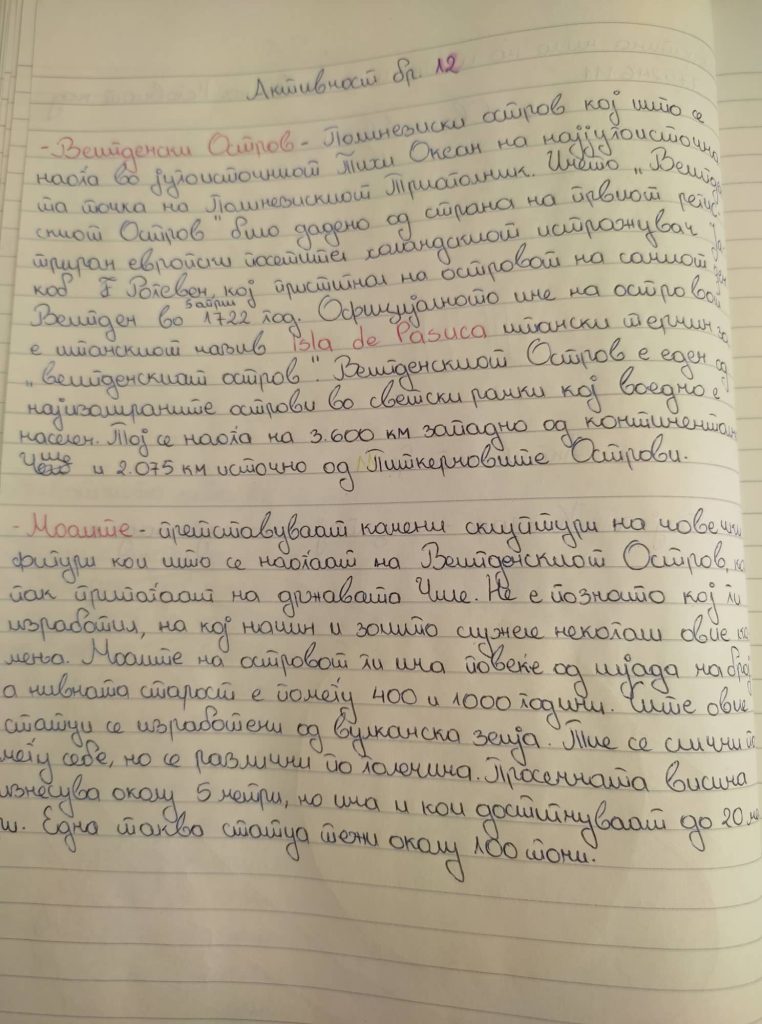 Активност бр. 12
- Велигденски Остров - Полинезиски остров кој што се
наоѓа во југоисточниот Тихи Океан на најјугоисточна
та точка на Полинезискиот Триаголник. Името „Велигден
скиот Остров" било дадено од страна на првиот регис
триран европски посетител холандскиот истражувач Ја
коб Рогевен, кој пристигнал на островот на самиот ден
Велигден во 5 април 1722 год. Официјалното име на островот
е шпанскиот назив isla de Pasuca шпански термин за
„велигденскиот остров". Велигденскиот Остров е еден од
најизолираните острови во светски рамки кој воедно е
населен. Тој се наоѓа на 3.600 км западно од континентал
Чиле и 2.075 км источно од Питкерновите Острови.
- Моаите - претставуваат камени скулптури на човечки
фигури кои што се наоѓаат на Велигденскиот Остров,
пак припаѓаат на државата Чиле. Не е познато кој ги
изработил, на кој начин и зошто служеле некогаш овие ка
мења. Моаите на островот ги има повеќе од илјада на број
а нивната старост е помеѓу 400 и 1000 години. Сите овие
статуи се изработени од вулканска земја. Тие се слични по
меѓу себе, но се различни по големина. Просечната висина
изнесува околу 5 метри, но има и кои достигнуваат до 20 ме
ри. Една таква статуа тежи околу 100 тони.